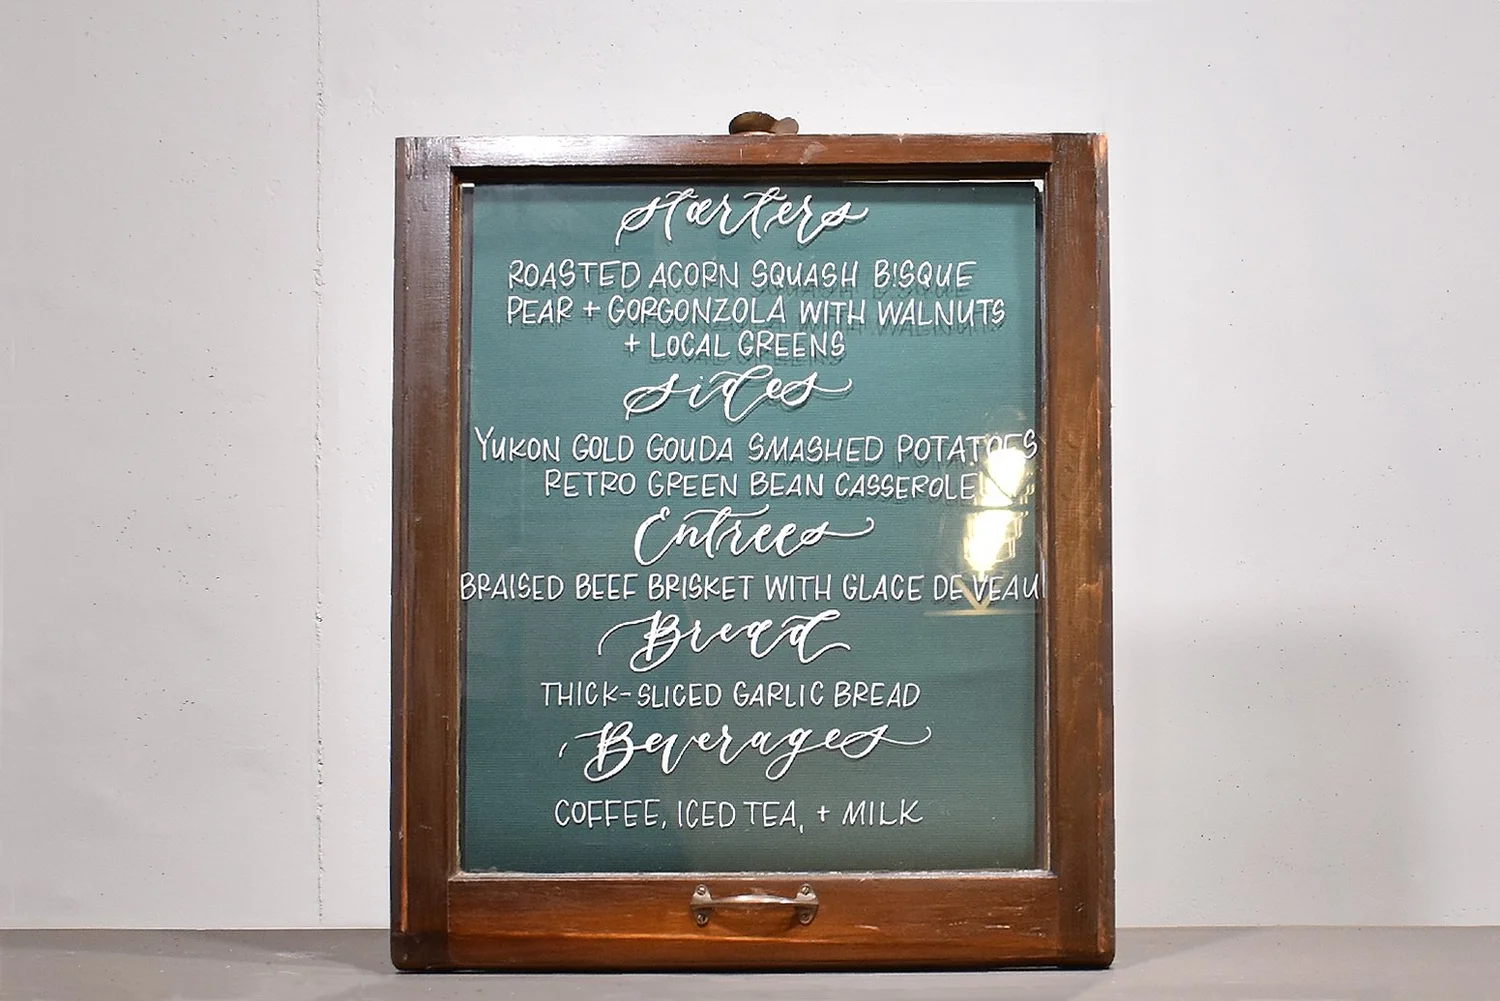 starters
ROASTED ACORN SQUASH BISQUE
PEAR + GORGONZOLA WITH WALNUTS
+ LOCAL GREENS
sides
YUKON GOLD GOUDA SMASHED POTATOES
RETRO GREEN BEAN CASSEROLE
Entrees
BRAISED BEEF BRISKET WITH GLACE DE VEAU
Bread
THICK-SLICED GARLIC BREAD
Beverages
COFFEE, ICED TEA, + MILK